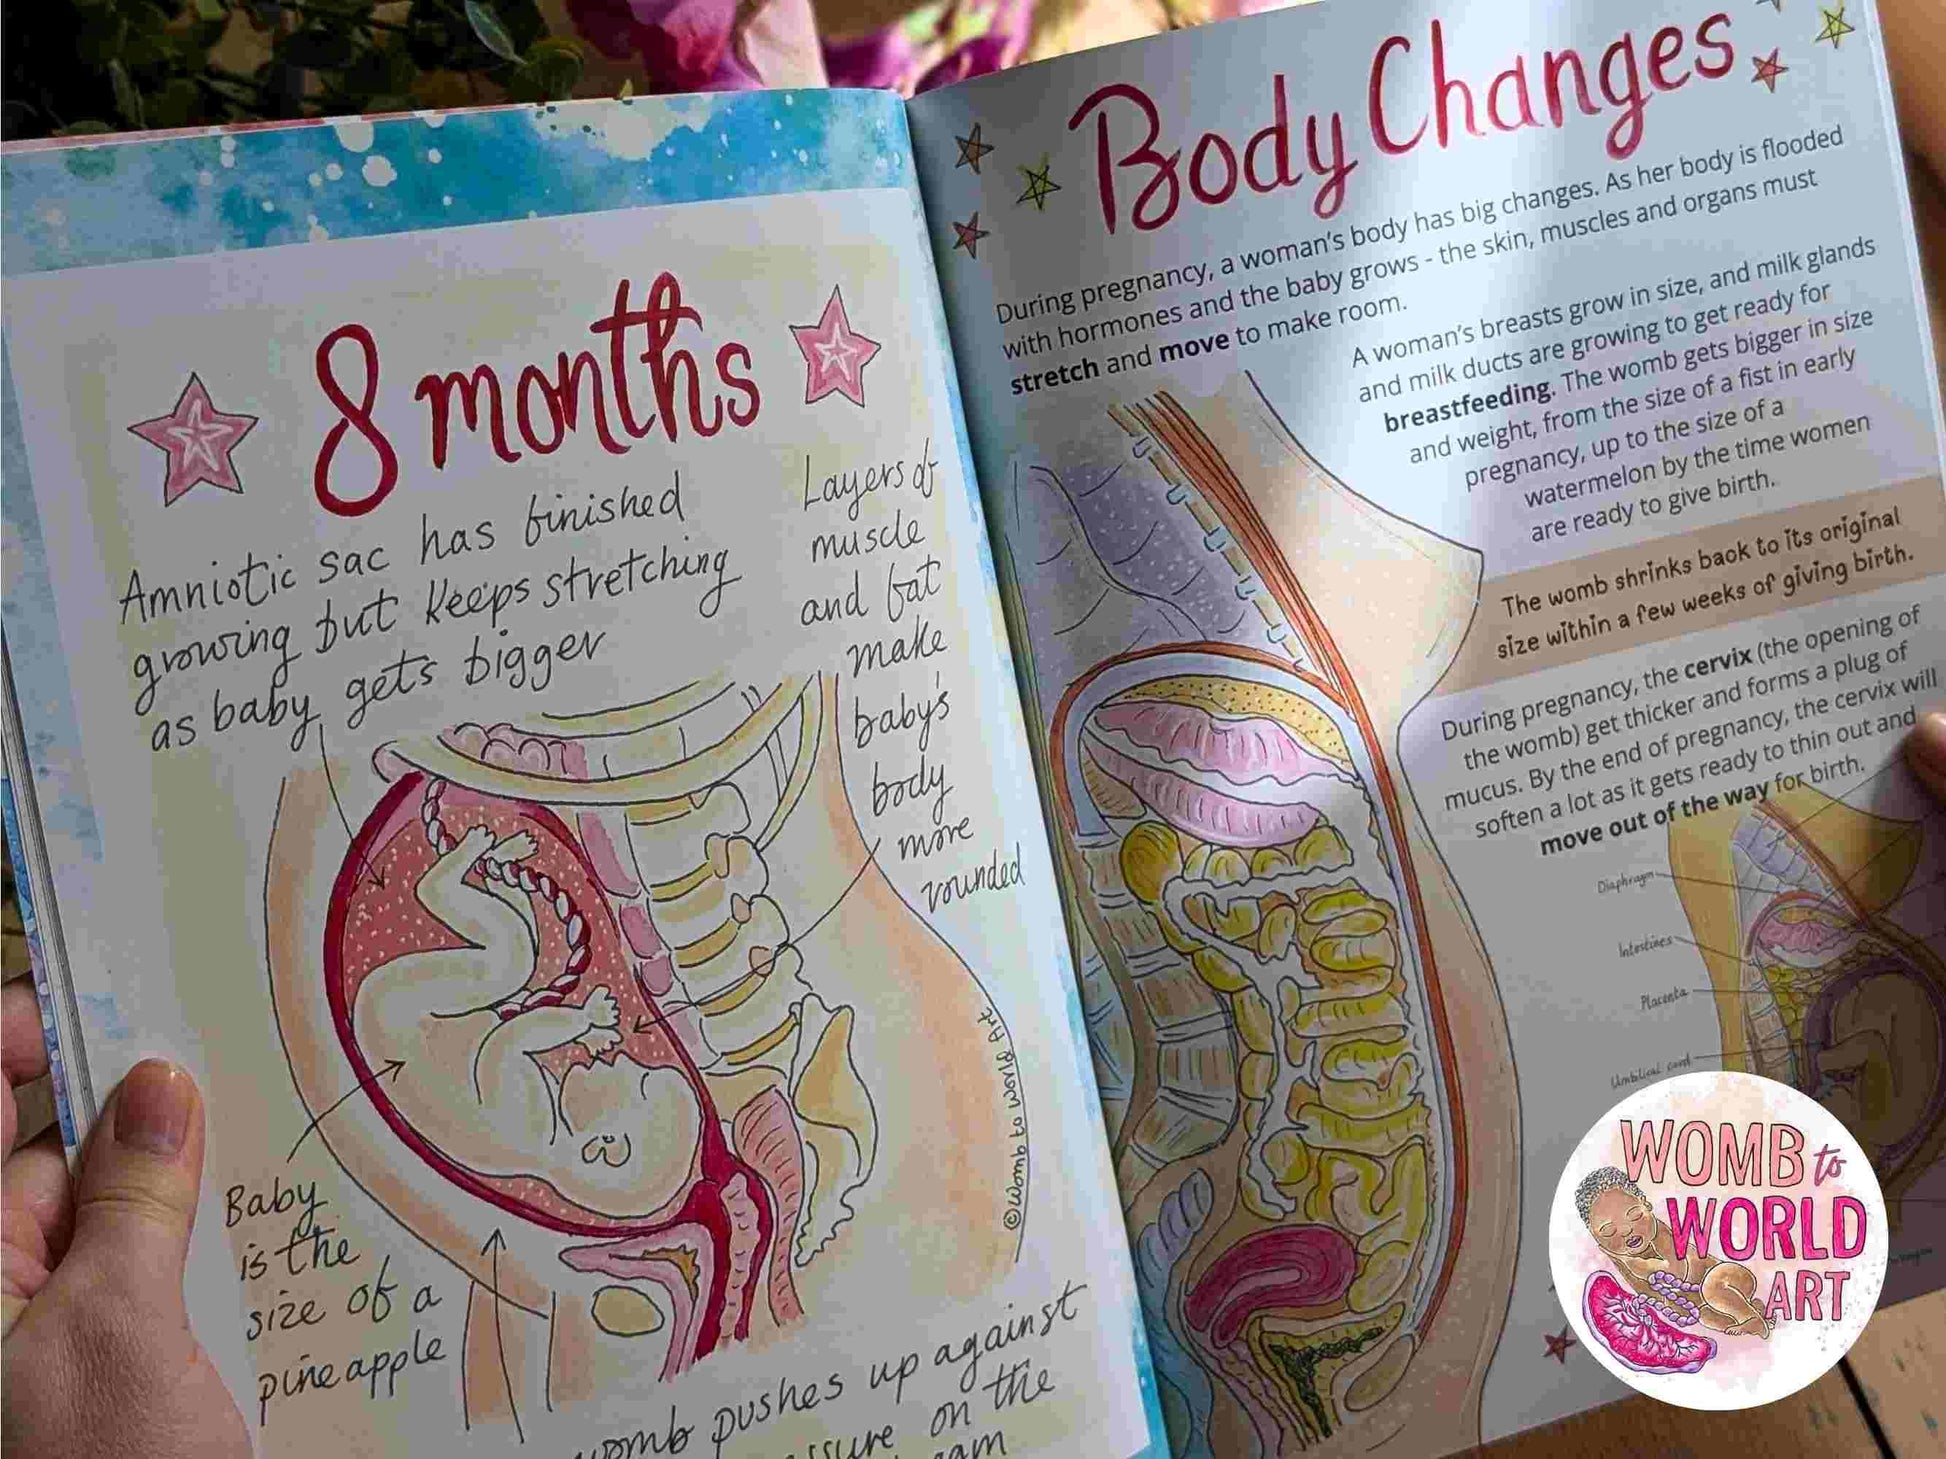 8 months
Amniotic sac has finished
growing but keeps stretching
as baby gets bigger
Layers of
muscle
and fat
make
baby's
body
more
rounded
Baby
is the
size of a
pineapple
©Womb to World Art
womb pushes up against
on the
Body Changes
During pregnancy, a woman's body has big changes. As her body is flooded
with hormones and the baby grows - the skin, muscles and organs must
stretch and move to make room.
A woman's breasts grow in size, and milk glands
and milk ducts are growing to get ready for
breastfeeding. The womb gets bigger in size
and weight, from the size of a fist in early
pregnancy, up to the size of a
watermelon by the time women
are ready to give birth.
The womb shrinks back to its original
size within a few weeks of giving birth.
During pregnancy, the cervix (the opening of
the womb) get thicker and forms a plug of
mucus. By the end of pregnancy, the cervix will
soften a lot as it gets ready to thin out and
move out of the way for birth.
Diaphragm
Intestines
Placenta
Umbilical cord
WOMB to
WORLD
ART